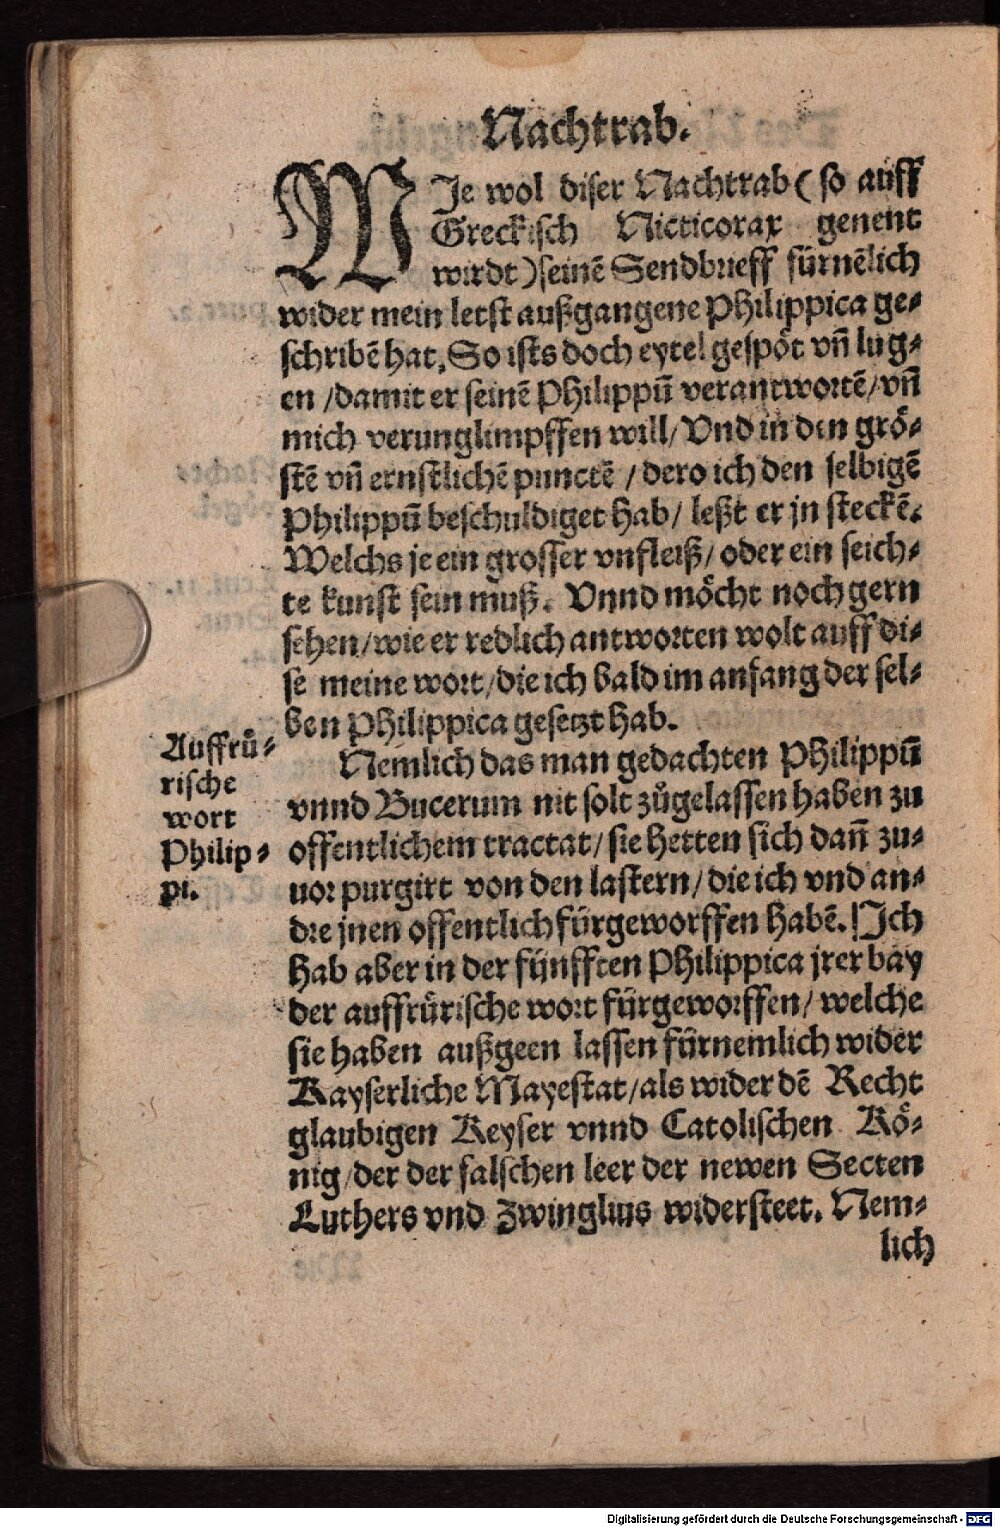 Nachtrab.
WJe wol diser Nachtrab ( so auff
Greckisch Nicticorax genent
wirdt ) seinē Sendbrieff fürnēlich
wider mein letst außgangene Philippica ge⸗
schribē hat, So ists doch eytel gespöt vñ lug⸗
en / damit er seinē Philippū verantwortē / vñ
mich verunglimpffen will / Vnd in den grö⸗
stē vñ ernstlichē punctē / dero ich den selbigē
Philippū beschuldiget hab / leßt er jn steckē.
Welchs je ein grosser vnfleiß / oder ein seich⸗
te kunst sein muß. Vnnd möcht noch gern
sehen / wie er redlich antworten wolt auff di⸗
se meine wort / die ich bald im anfang der sel⸗
ben Philippica gesetzt hab.
Auffrü⸗
rische
wort
Philip⸗
pi.
Nemlich das man gedachten Philippū
vnnd Bucerum nit solt zůgelassen haben zu
offentlichem tractat / sie hetten sich dañ zu⸗
uor purgirt von den lastern / die ich vnd an⸗
dre jnen offentlich fürgeworffen habē. Jch
hab aber in der fünfften Philippica jrer bay
der auffrürische wort fürgeworffen / welche
sie haben außgeen lassen fürnemlich wider
Kayserliche Mayestat / als wider dē Recht
glaubigen Keyser vnnd Catolischen Kö⸗
nig / der der falschen leer der newen Secten
Luthers vnd Zwinglius widersteet. Nem⸗
lich
Digitalisierung gefördert durch die Deutsche Forschungsgemeinschaft - DFG